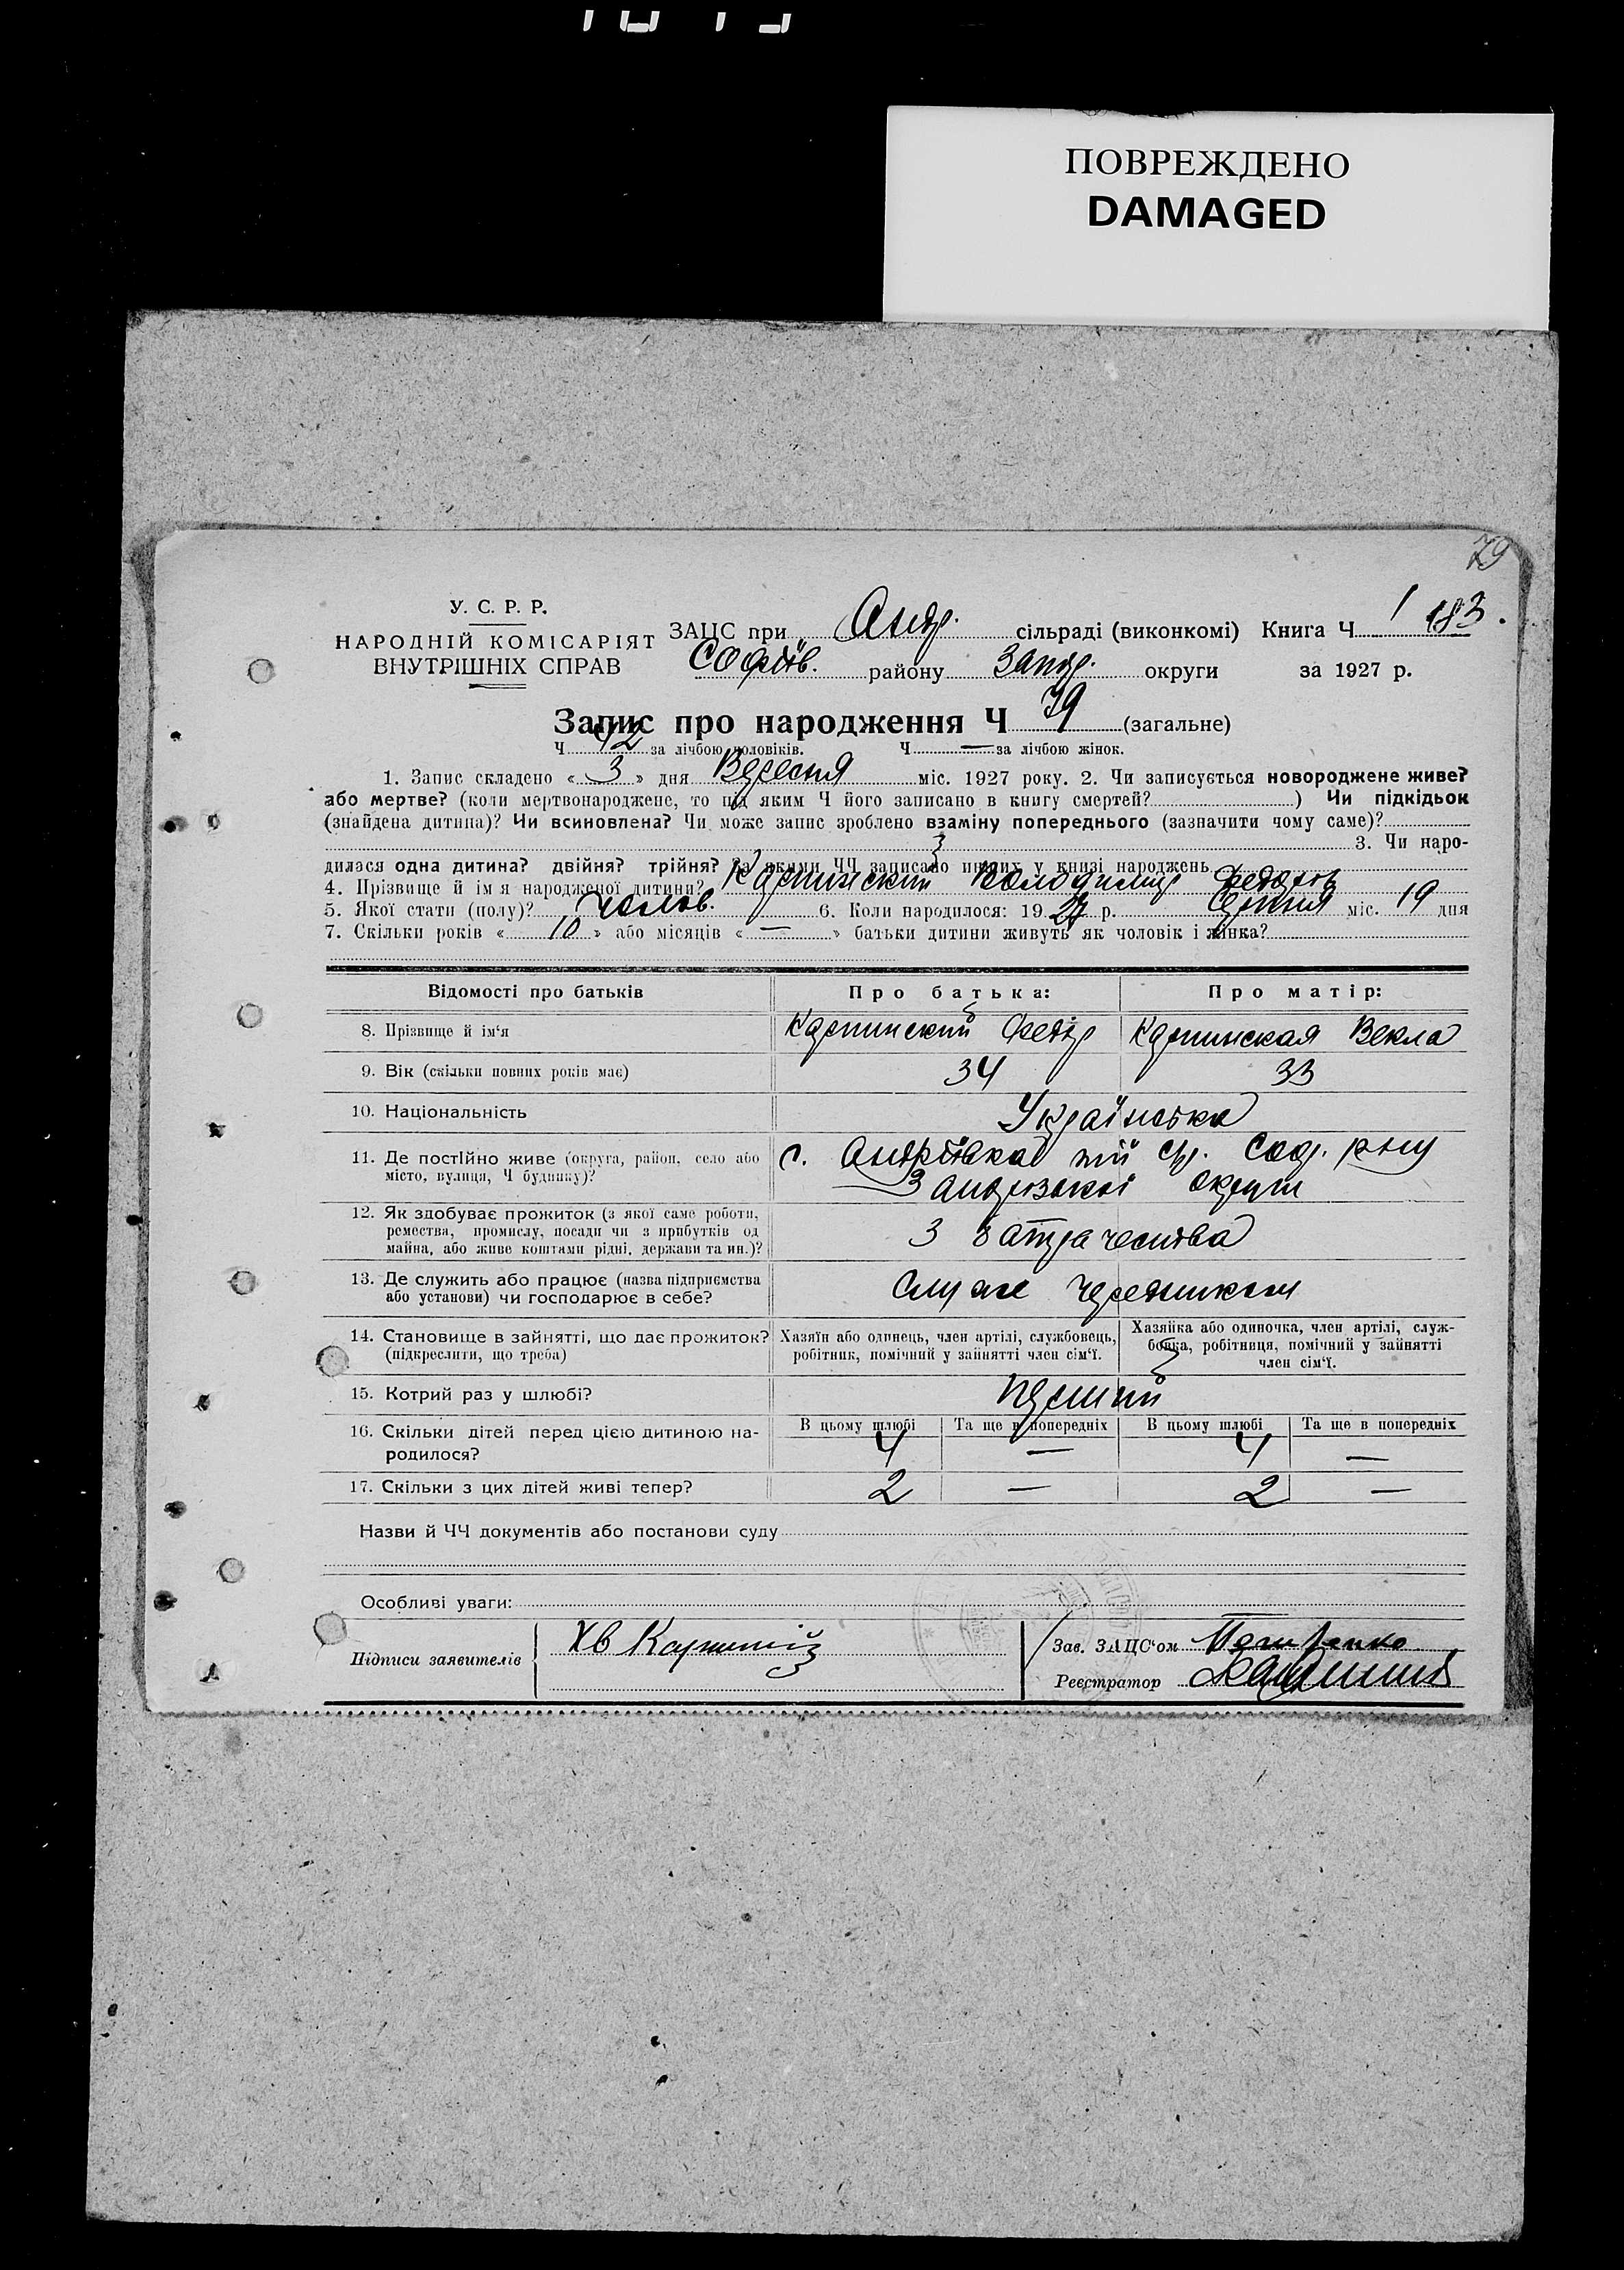 ПОВРЕЖДЕНО
DAMAGED
79
У. С. Р. Р.
НАРОДНІЙ КОМІСАРІЯТ
ВНУТРІШНІХ СПРАВ
ЗАЦС при Андр. сільраді (виконкомі) Книга Ч 1 183.
Софіїв. району Запор. округи за 1927 р.
Запис про народження Ч 79 (загальне)
Ч 42 за лічбою чоловіків. Ч — за лічбою жінок.
1. Запис складено « 3 » дня Вересня міс. 1927 року. 2. Чи записується новороджене живе?
або мертве? (коли мертвонароджене, то під яким Ч його записано в книгу смертей? ) Чи підкідьок
(знайдена дитина)? Чи всиновлена? Чи може запис зроблено взаміну попереднього (зазначити чому саме)?
3. Чи наро-
дилася одна дитина? двійня? трійня? За якими ЧЧ записано инших у книзі народжень
4. Прізвище й ім'я народженої дитини? Карпинский Володимир Федоров
5. Якої стати (полу)? Чолов. 6. Коли народилося: 19 27 р. Серпня міс. 19 дня
7. Скільки років « 10 » або місяців « — » батьки дитини живуть як чоловік і жінка?
Відомості про батьків Про батька: Про матір:
8. Прізвище й ім'я Карпинский Федір Карпинская Векла
9. Вік (скільки повних років має) 34 33
10. Національність Українська
11. Де постійно живе (округа, район, село або місто, вулиця, Ч будинку)? с. Андріївка тій ср. Соф. рну
Запорізької округи
12. Як здобуває прожиток (з якої саме роботи,
ремества, промислу, посади чи з прибутків од
майна, або живе коштами рідні, держави та ин.)? З батрачества
13. Де служить або працює (назва підприємства
або установи) чи господарює в себе? Служе чередником
14. Становище в зайнятті, що дає прожиток?
(підкреслити, що треба)
Хазяїн або одинець, член артілі, службовець,
робітник, помічний у зайнятті член сім'ї.
Хазяйка або одиночка, член артілі, служ-
бовка, робітниця, помічний у зайнятті
член сім'ї.
15. Котрий раз у шлюбі? Перший
В цьому шлюбі Та ще в попередніх В цьому шлюбі Та ще в попередніх
16. Скільки дітей перед цією дитиною на-
родилося? 4 — 4 —
17. Скільки з цих дітей живі тепер? 2 — 2 —
Назви й ЧЧ документів або постанови суду
Особливі уваги:
Підписи заявителів Хв
Зав. ЗАЦС'ом
Реєстратор